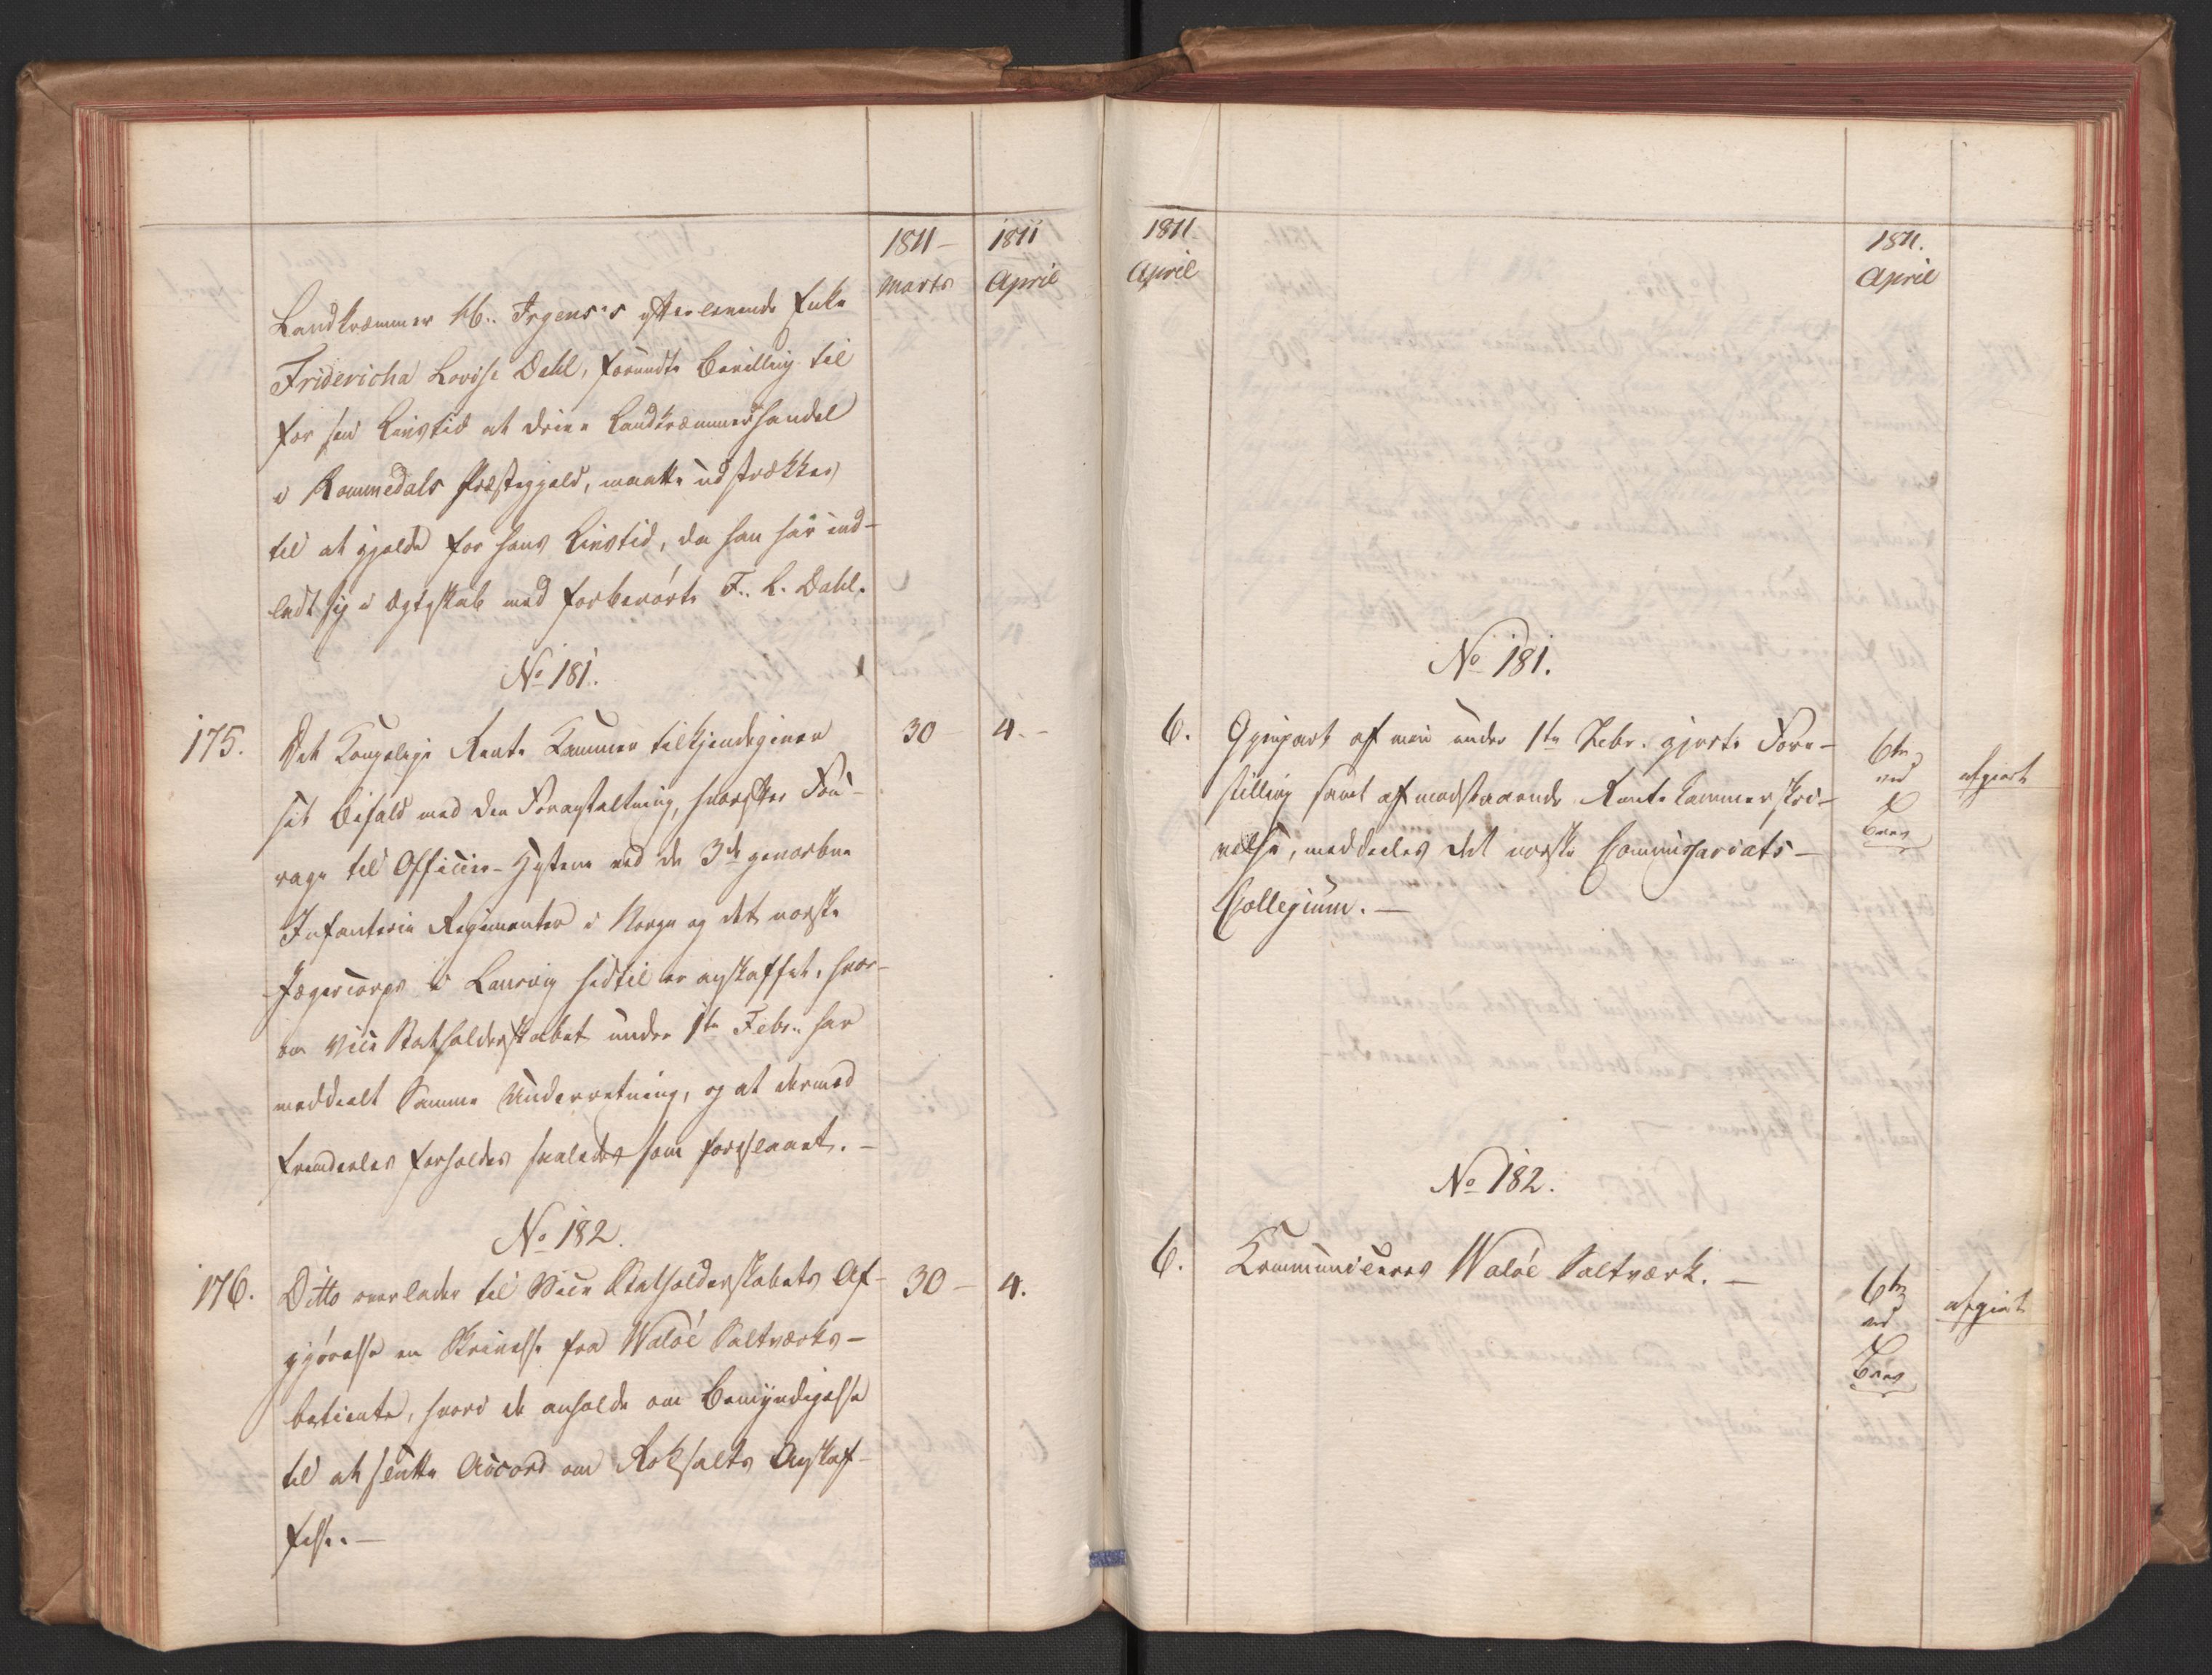 1811 –
Marts
1811
April
Landkræmmer M.. Irgens's efterlevende Enke
Fridericha Lovise Dahl, forundte Bevilling til
for sin Livstid at drive Landkræmmerhandel
i Rommedals Præstegjeld, maatte udstrækkes
til at gjelde for hans Livstid, da han har ind-
ladt sig i Ægteskab med forberørte F.. L. Dahl.
No 181.
175.
Det Kongelige Rente Kammer tilkjendegiver
30 –
4. –
sit Bifald med den Foranstaltning, hvorefter Fou-
rage til Officier-Hestene ved de 3de gevorbne
Infanterie Regimenter i Norge og det norske
Jægercorps i Laurvig hidtil er anskaffet, hvor-
om Vice Statholderskabet under 1te Febr.. har
meddeelt Samme Underretning, og at dermed
fremdeles forholdes saaledes som foreslaaet. –
No 182.
176.
Ditto overlader til Vice Statholderskabets Af-
30 –
4.
gjørelse en Skrivelse fra Waløe Saltværks-
betiente, hvori de anholde om Bemyndigelse
til at slutte Accord om Koksalts Anskaf-
felse. –
1811
April
1811.
April
No 181.
6.
Gjenpart af min under 1te Febr. gjorte Fore-
stilling samt af modstaaende Rente Kammerskri-
velse, meddeeles det norske Commissariats-
Collegium. –
6te
ved
Brev
afgiort
No 182.
6.
Kommuniceres Waløe Saltværk. –
6te
ved
Brev
afgiort